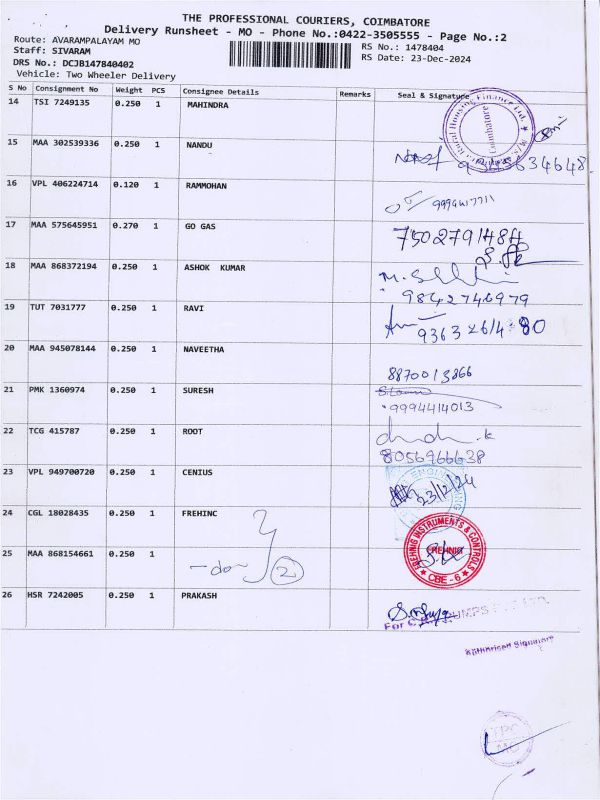 THE PROFESSIONAL COURIERS, COIMBATORE
Delivery Runsheet - MO - Phone No.:0422-3505555 - Page No.:2
Route: AVARAMPALAYAM MO
Staff: SIVARAM
RS No.: 1478404
DRS No.: DCJB147840402
RS Date: 23-Dec-2024
Vehicle: Two Wheeler Delivery
S No Consignment No Weight PCS Consignee Details Remarks Seal & Signature
14 TSI 7249135 0.250 1 MAHINDRA
Rural Housing Finance Ltd. ★ M/s.
Coimbatore
15 MAA 302539336 0.250 1 NANDU
16 VPL 406224714 0.120 1 RAMMOHAN
17 MAA 575645951 0.270 1 GO GAS
7502791484
18 MAA 868372194 0.250 1 ASHOK KUMAR
9842746979
19 TUT 7031777 0.250 1 RAVI
20 MAA 945078144 0.250 1 NAVEETHA
8870013866
21 PMK 1360974 0.250 1 SURESH
9994414013
22 TCG 415787 0.250 1 ROOT
8056966638
23 VPL 949700720 0.250 1 CENIUS
23/12/24
24 CGL 18028435 0.250 1 FREHINC
FREHNIG INSTRUMENTS & CONTROLS
FREHNIG
★ CBE - 6 ★
25 MAA 868154661 0.250 1
-do- 2
26 HSR 7242005 0.250 1 PRAKASH
For C.R.I. PUMPS PVT LTD.
Authorised Signatory
TPC
MO